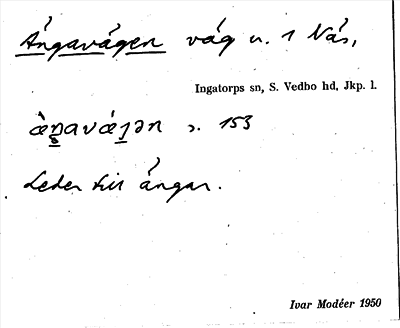 Ängavägen väg u. 1 Näs,
Ingatorps sn, S. Vedbo hd, Jkp. l.
s. 153
Leder till ängar.
Ivar Modéer 1950